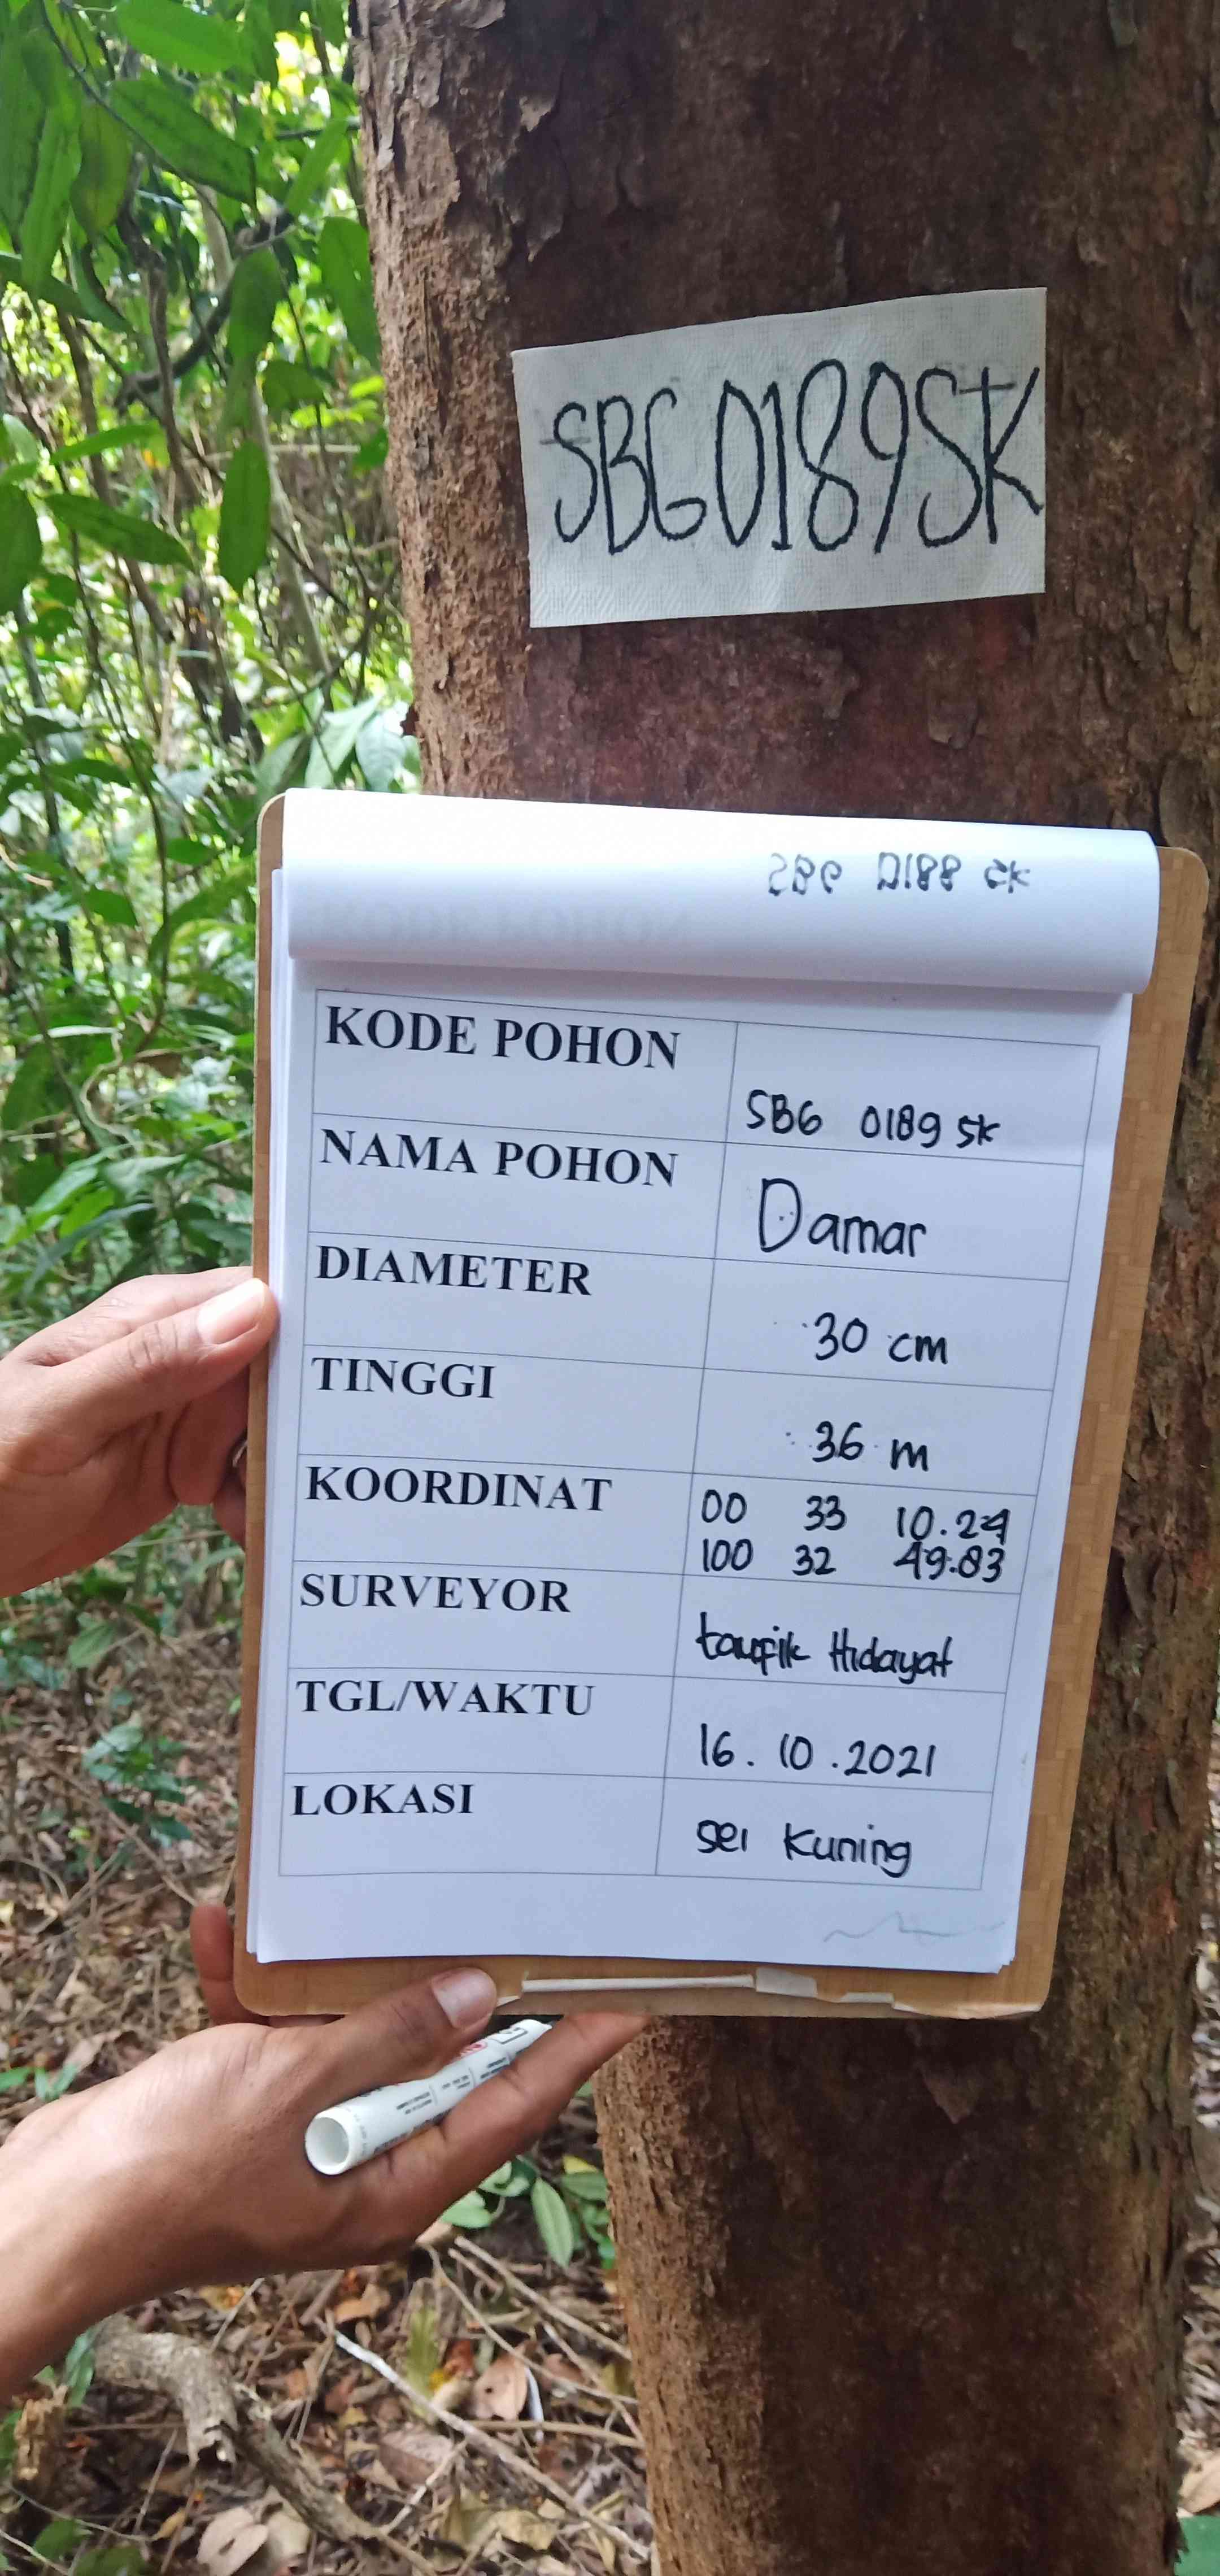 SBG0189SK
SBG 0188 SK
KODE POHON
SBG 0189 SK
NAMA POHON
Damar
DIAMETER
30 cm
TINGGI
36 m
KOORDINAT
00 33 10.24
100 32 49.83
SURVEYOR
taufik Hidayat
TGL/WAKTU
16.10.2021
LOKASI
Sei Kuning